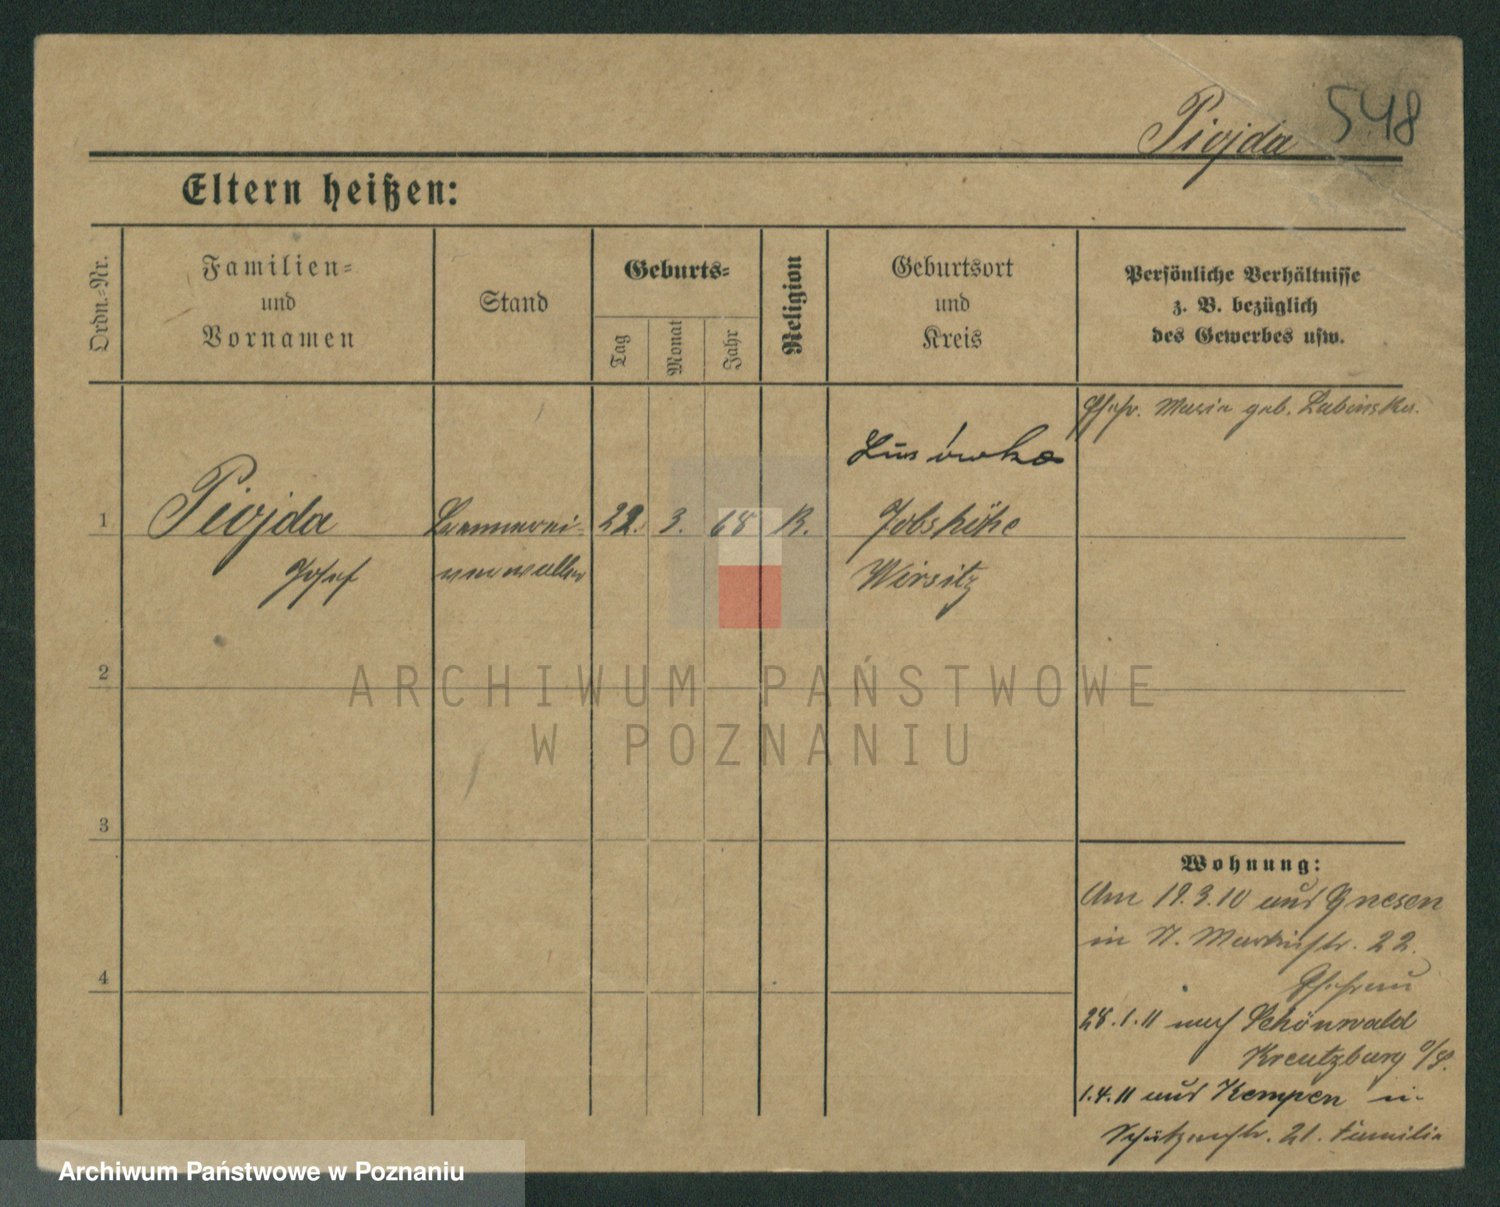 548
Piojda
Eltern heißen:
Ordn.-Nr.
Familien-
und
Vornamen
Stand
Geburts-
Tag
Monat
Jahr
Religion
Geburtsort
und
Kreis
Persönliche Verhältnisse
z. B. bezüglich
des Gewerbes usw.
Ehefr. Maria geb. Labinska.
1
Piojda
Josef
Brennerei-
verwalter
22. 3. 68 K.
Lusówko
Jobshöhe
Wirsitz
2
3
4
ARCHIWUM PAŃSTWOWE
W POZNANIU
Wohnung:
Am 19.3.10 aus Gnesen
in St. Martinstr. 22.
Ehefrau
28.1.11 nach Schönwald
Kreutzburg o/S.
1.4.11 aus Kempen in
Schützenstr. 21. Familie
Archiwum Państwowe w Poznaniu